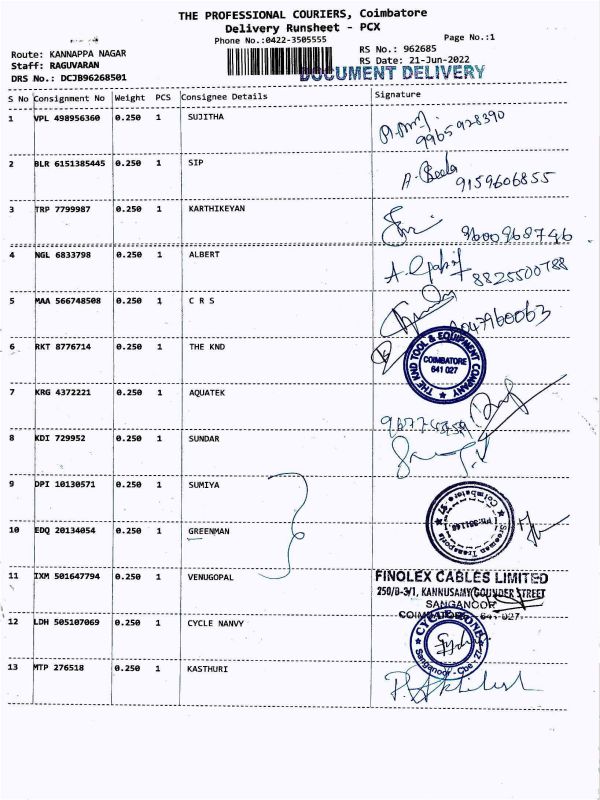 THE PROFESSIONAL COURIERS, Coimbatore
Delivery Runsheet - PCX
Phone No.:0422-3505555
Page No.:1
Route: KANNAPPA NAGAR
RS No.: 962685
Staff: RAGUVARAN
RS Date: 21-Jun-2022
DRS No.: DCJB96268501
DOCUMENT DELIVERY
S No Consignment No Weight PCS Consignee Details Signature
1 VPL 498956360 0.250 1 SUJITHA
9965928390
2 BLR 6151385445 0.250 1 SIP
9159606855
3 TRP 7799987 0.250 1 KARTHIKEYAN
9600968746
4 NGL 6833798 0.250 1 ALBERT
8825500788
5 MAA 566748508 0.250 1 C R S
6 RKT 8776714 0.250 1 THE KND
THE KND TOOL & EQUIPMENT COMPANY
COIMBATORE
641 027
7 KRG 4372221 0.250 1 AQUATEK
8 KDI 729952 0.250 1 SUNDAR
9 DPI 10130571 0.250 1 SUMIYA
10 EDQ 20134054 0.250 1 GREENMAN
Sreeman Transports
11 IXM 501647794 0.250 1 VENUGOPAL
FINOLEX CABLES LIMITED
250/B-3/1, KANNUSAMY GOUNDER STREET
SANGANOOR
COIMBATORE - 641 027
12 LDH 505107069 0.250 1 CYCLE NANVY
Sanganoor - Cbe - 27
13 MTP 276518 0.250 1 KASTHURI